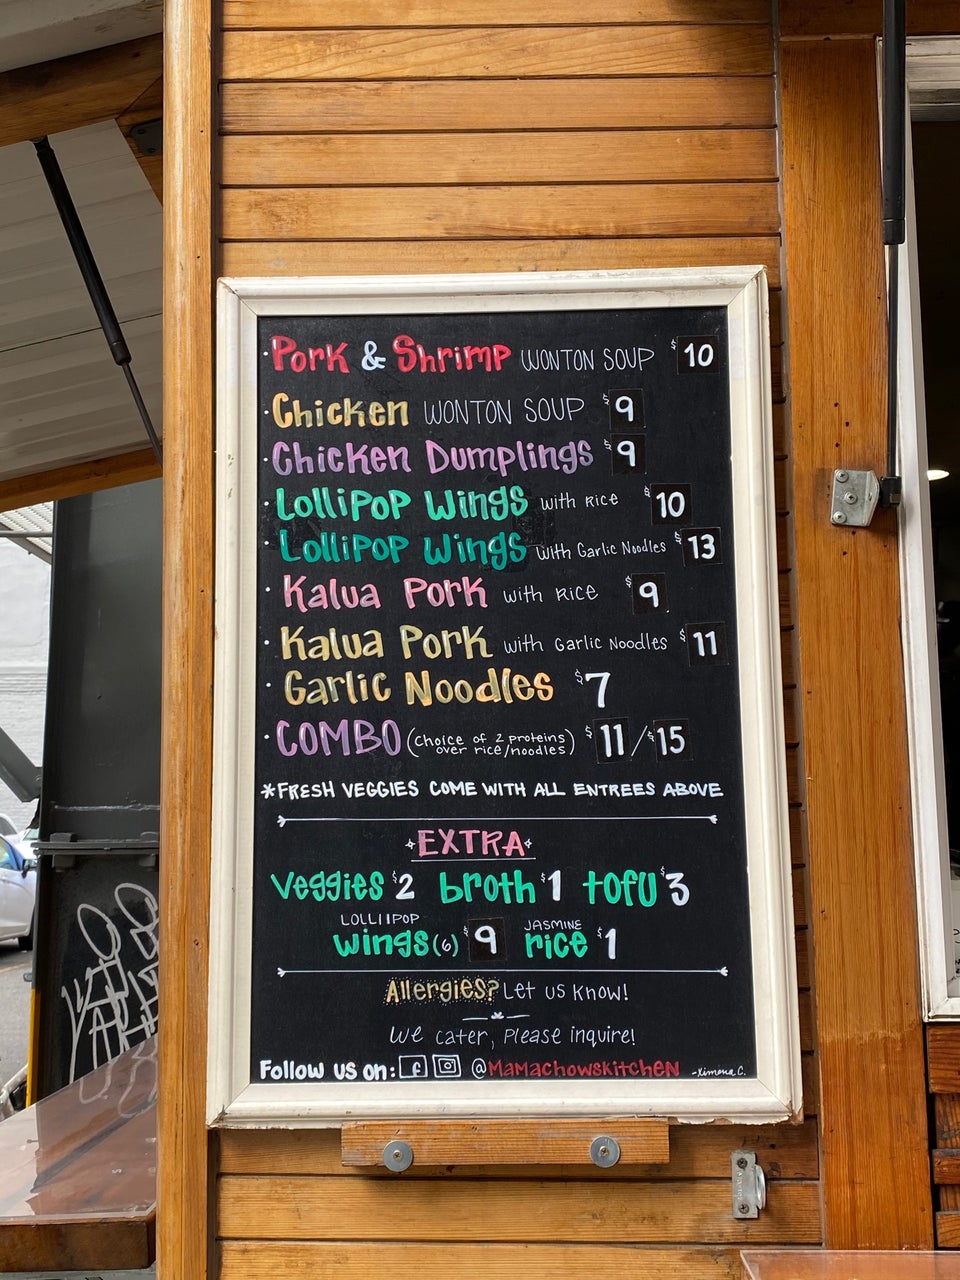 · Pork & Shrimp WONTON SOUP $10
· Chicken WONTON SOUP $9
· Chicken Dumplings $9
· Lollipop Wings with Rice $10
· Lollipop Wings with Garlic Noodles $13
· Kalua Pork with Rice $9
· Kalua Pork with Garlic Noodles $11
· Garlic Noodles $7
· COMBO (choice of 2 proteins over rice/noodles) $11/$15
*FRESH VEGGIES COME WITH ALL ENTREES ABOVE
EXTRA
Veggies $2 broth $1 tofu $3
LOLLIIPOP wings (6) $9 JASMINE rice $1
Allergies? Let us know!
We cater, Please inquire!
Follow us on: f @MamachowsKitchen -Ximena C.